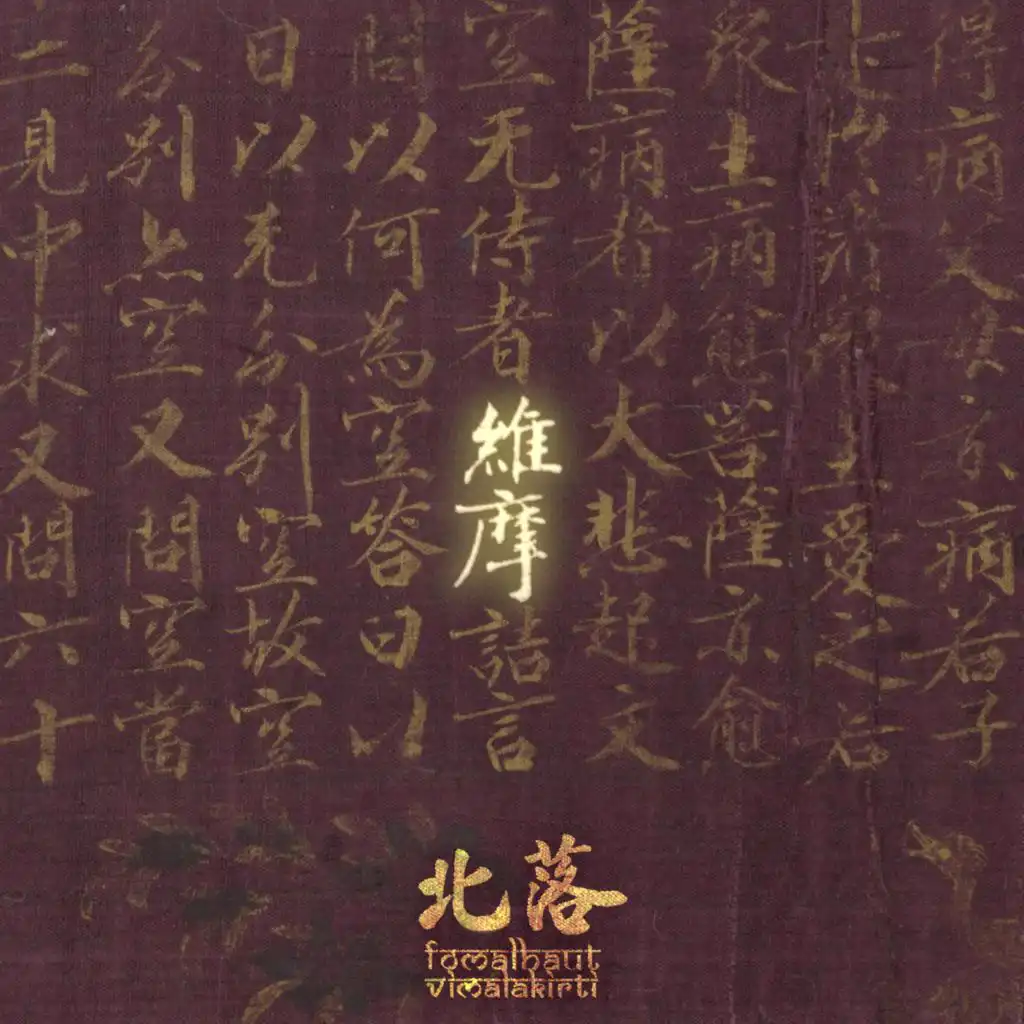 得病父母亦病若子
於諸眾生愛之若
眾生病愈菩薩亦愈
薩病者以大悲起文
空无侍者維摩詰言
問以何為空答曰以
曰以无分別空故空
分別亦空又問空當
二見中求又問六十
北落
fomalhaut
vimalakirti